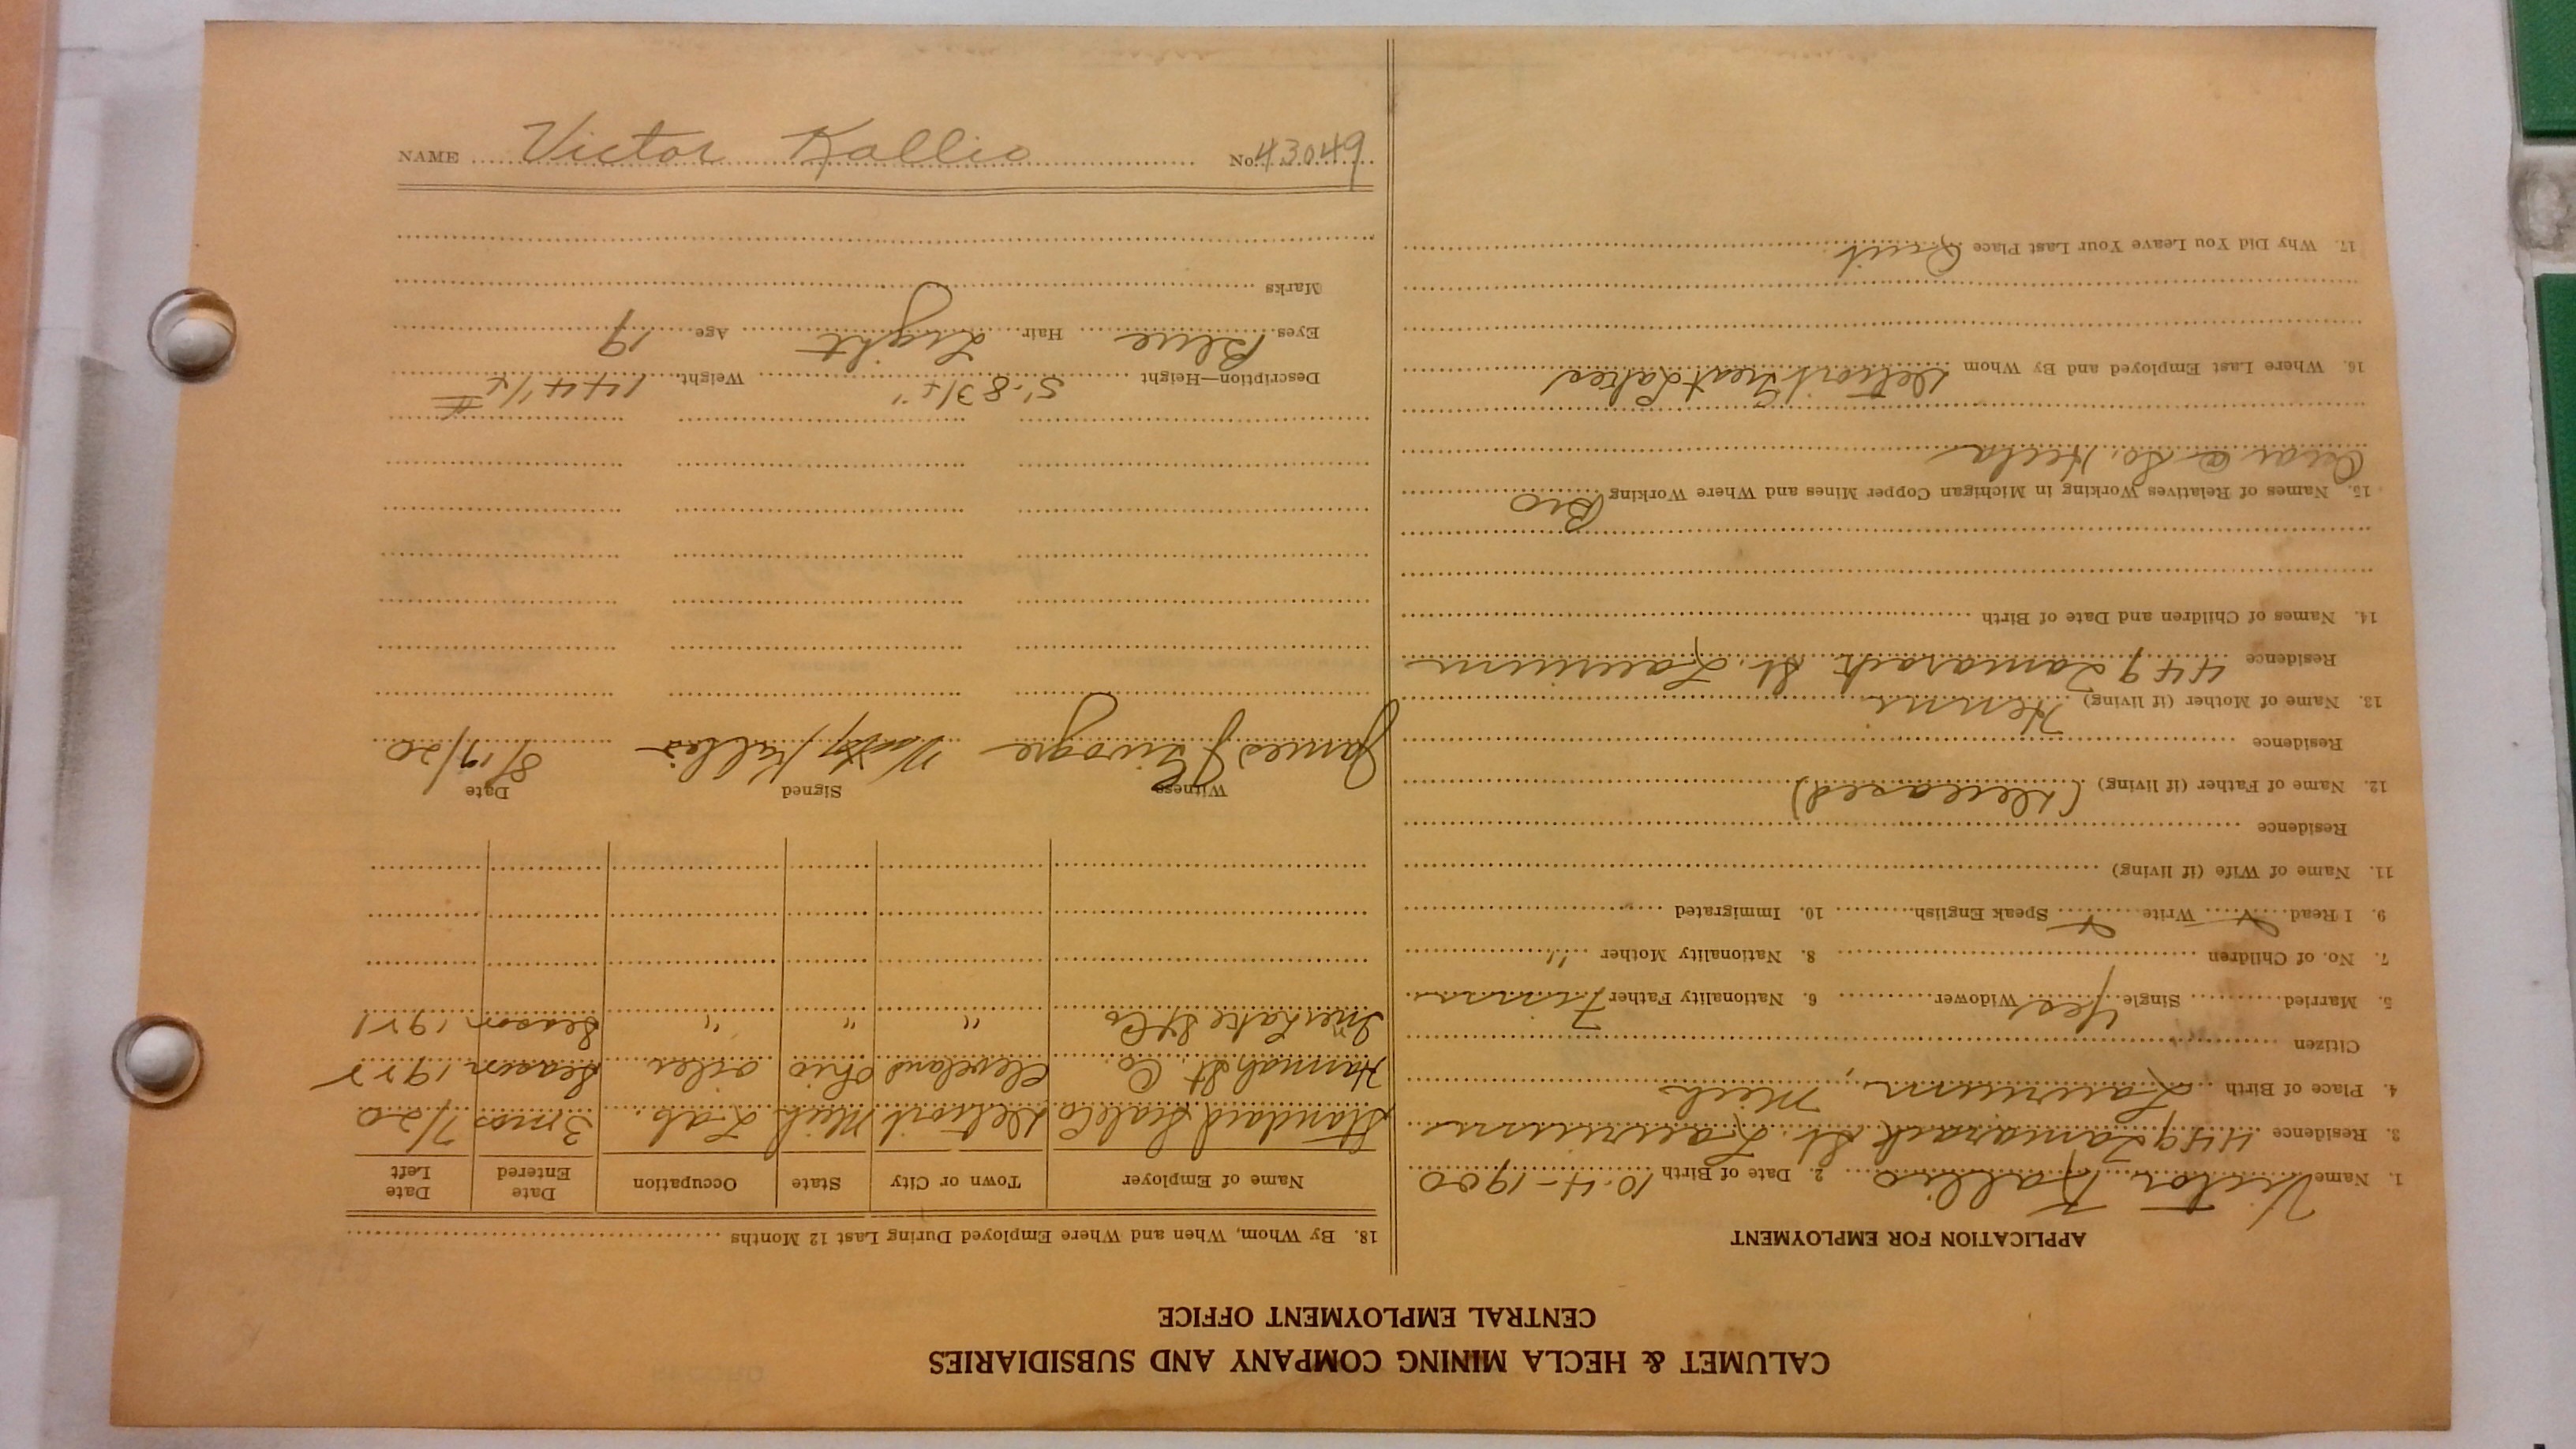 CALUMET & HECLA MINING COMPANY AND SUBSIDIARIES
CENTRAL EMPLOYMENT OFFICE
APPLICATION FOR EMPLOYMENT
1. Name Victor Kallio 2. Date of Birth 10-4-1900
3. Residence 449 Tamarack St. Laurium
4. Place of Birth Laurium, Mich
Citizen
5. Married Single Yes Widower 6. Nationality Father Finn
7. No. of Children 8. Nationality Mother "
9. I Read Write Speak English 10. Immigrated
11. Name of Wife (if living)
Residence
12. Name of Father (if living) (Deceased)
Residence
13. Name of Mother (if living)
Residence 449 Tamarack St. Laurium
14. Names of Children and Date of Birth
15. Names of Relatives Working in Michigan Copper Mines and Where Working Bro
Oscar @ So. Hecla
16. Where Last Employed and By Whom Detroit Great Lakes
17. Why Did You Leave Your Last Place Quit
18. By Whom, When and Where Employed During Last 12 Months
Name of Employer Town or City State Occupation Date Entered Date Left
Standard Co Detroit Mich Lab. 3 mos 7/20
Hannah St. Co. Cleveland Ohio oiler Season 1922
Lake St Co " " " Season 1921
Witness Signed Date
James J Victor Kallio 8/19/20
Description—Height 5'-8 3/4" Weight 144 1/2 #
Eyes Blue Hair Light Age 19
Marks
NAME Victor Kallio No. 43049